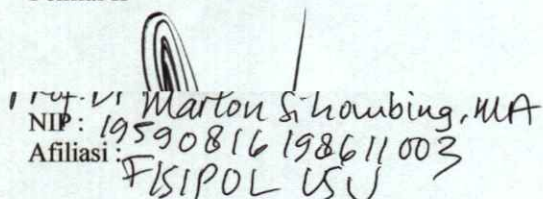 Prof. Dr Marlon Sihombing, MA
NIP : 19590816 198611 003
Afiliasi :
FISIPOL USU